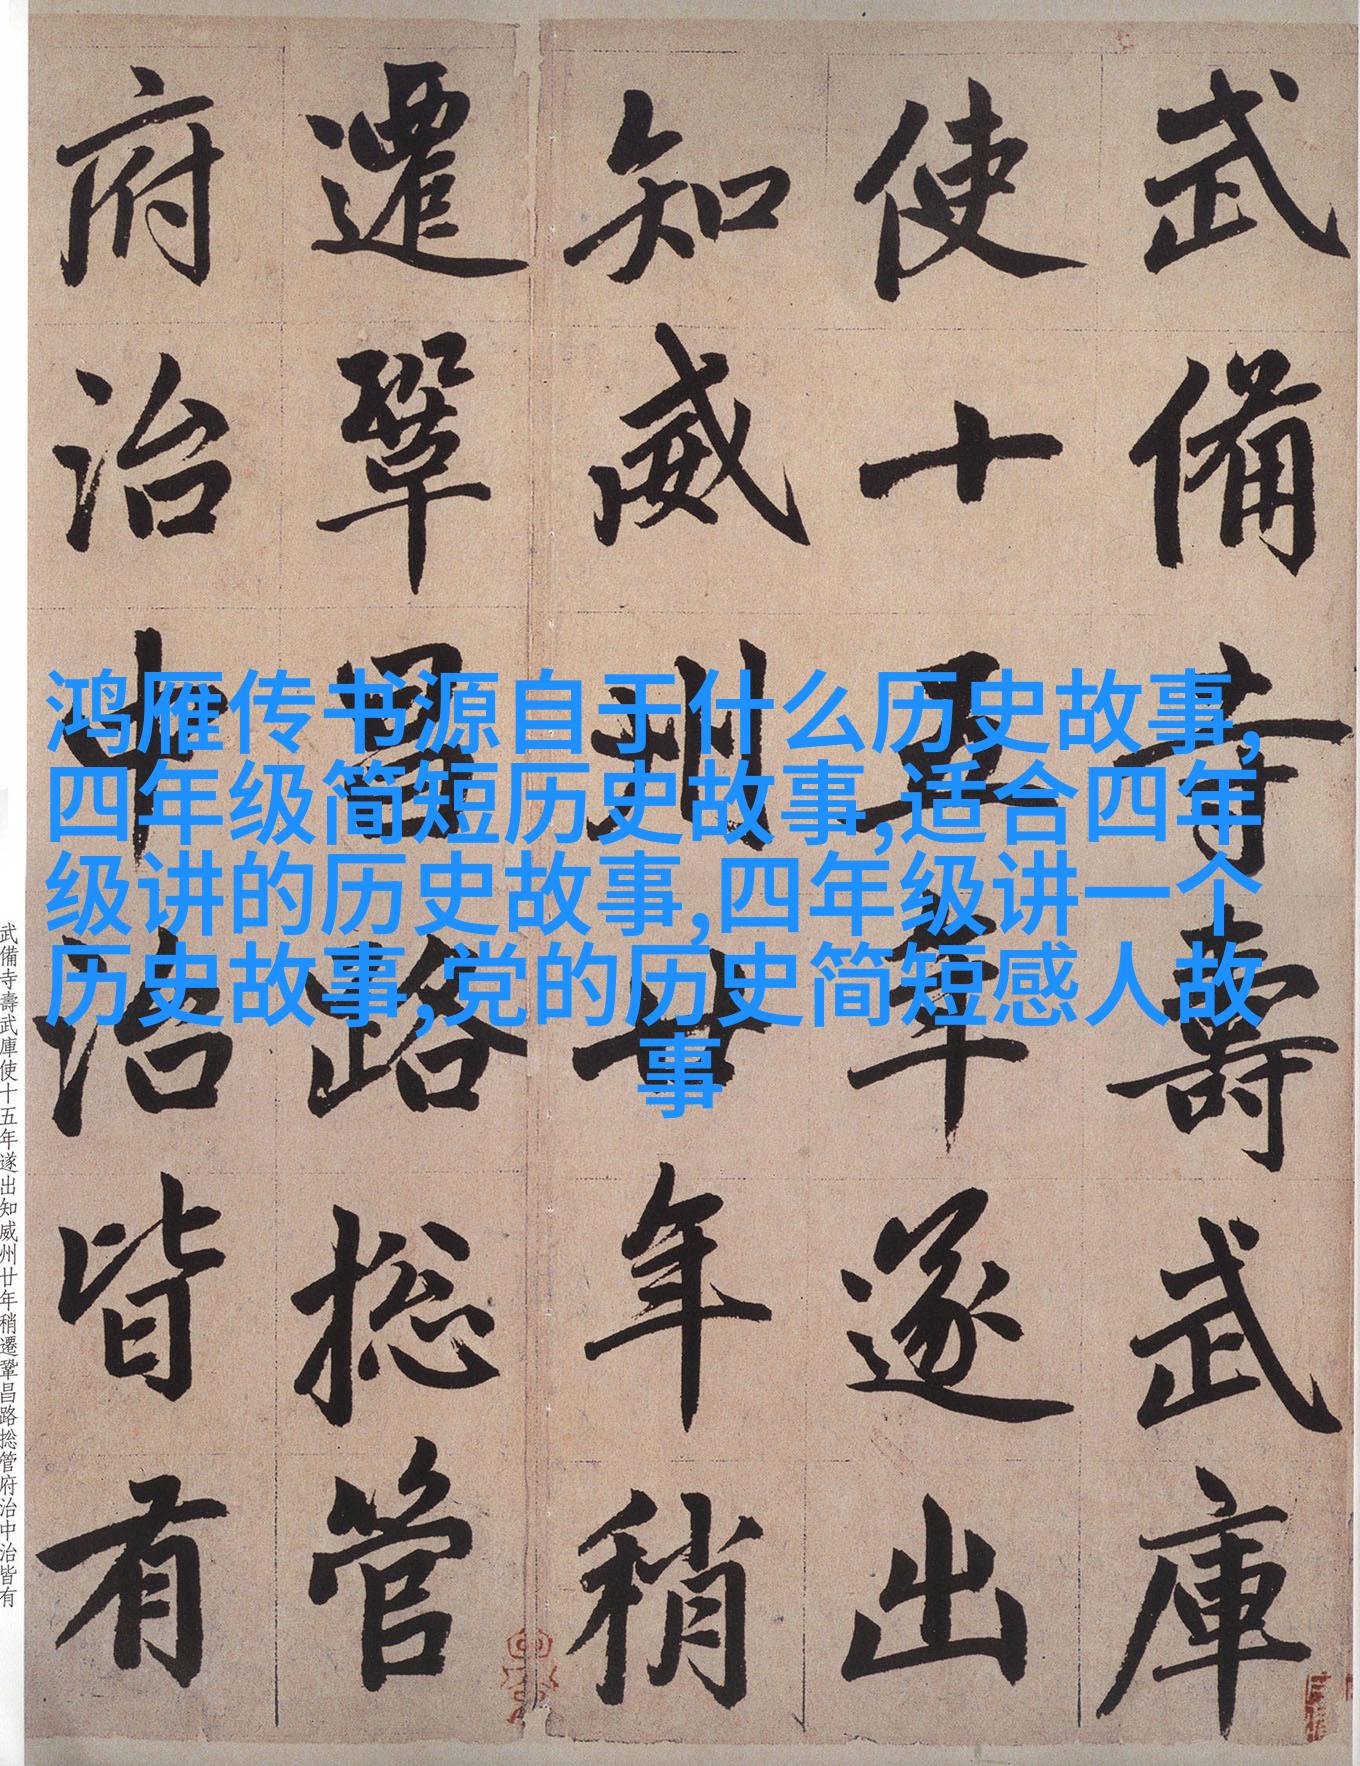 武備寺壽武庫
使十五年遂出
知威州廿年稍
遷鞏昌路捴管
府治中治皆有
鸿雁传书源自于什么历史故事,
四年级简短历史故事,适合四年
级讲的历史故事,四年级讲一个
历史故事,党的历史简短感人故
事
武備寺壽武庫使十五年遂出知威州廿年稍遷鞏昌路捴管府治中治皆有